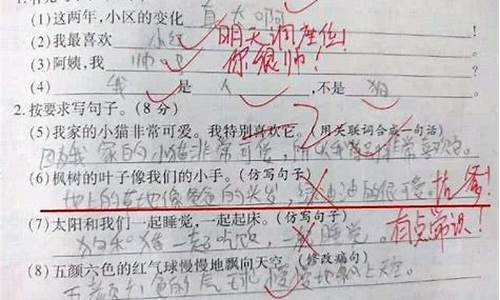 (1)这两年,小区的变化 真大啊
(2)我最喜欢 小红 明天调座位!
(3)阿姨,我 帅吧 你很帅!
(4) 我 是 人 ,不是 狗
2.按要求写句子。(8 分)
(5)我家的小猫非常可爱。我特别喜欢它。(用关联词合成一句话)
因为我家的小猫非常可爱,所以我非常喜欢它。
(6)枫树的叶子像我们的小手。(仿写句子)
地上的草地像爸爸的头发,绿油油的很可爱。
(7)太阳和我们一起睡觉,一起起床。(仿写句子) 有点常识!
一起吃饭,一起睡觉。
(8)五颜六色的红气球慢慢地飘向天空。(修改病句)
五颜六色的气球慢慢地飘上天空。